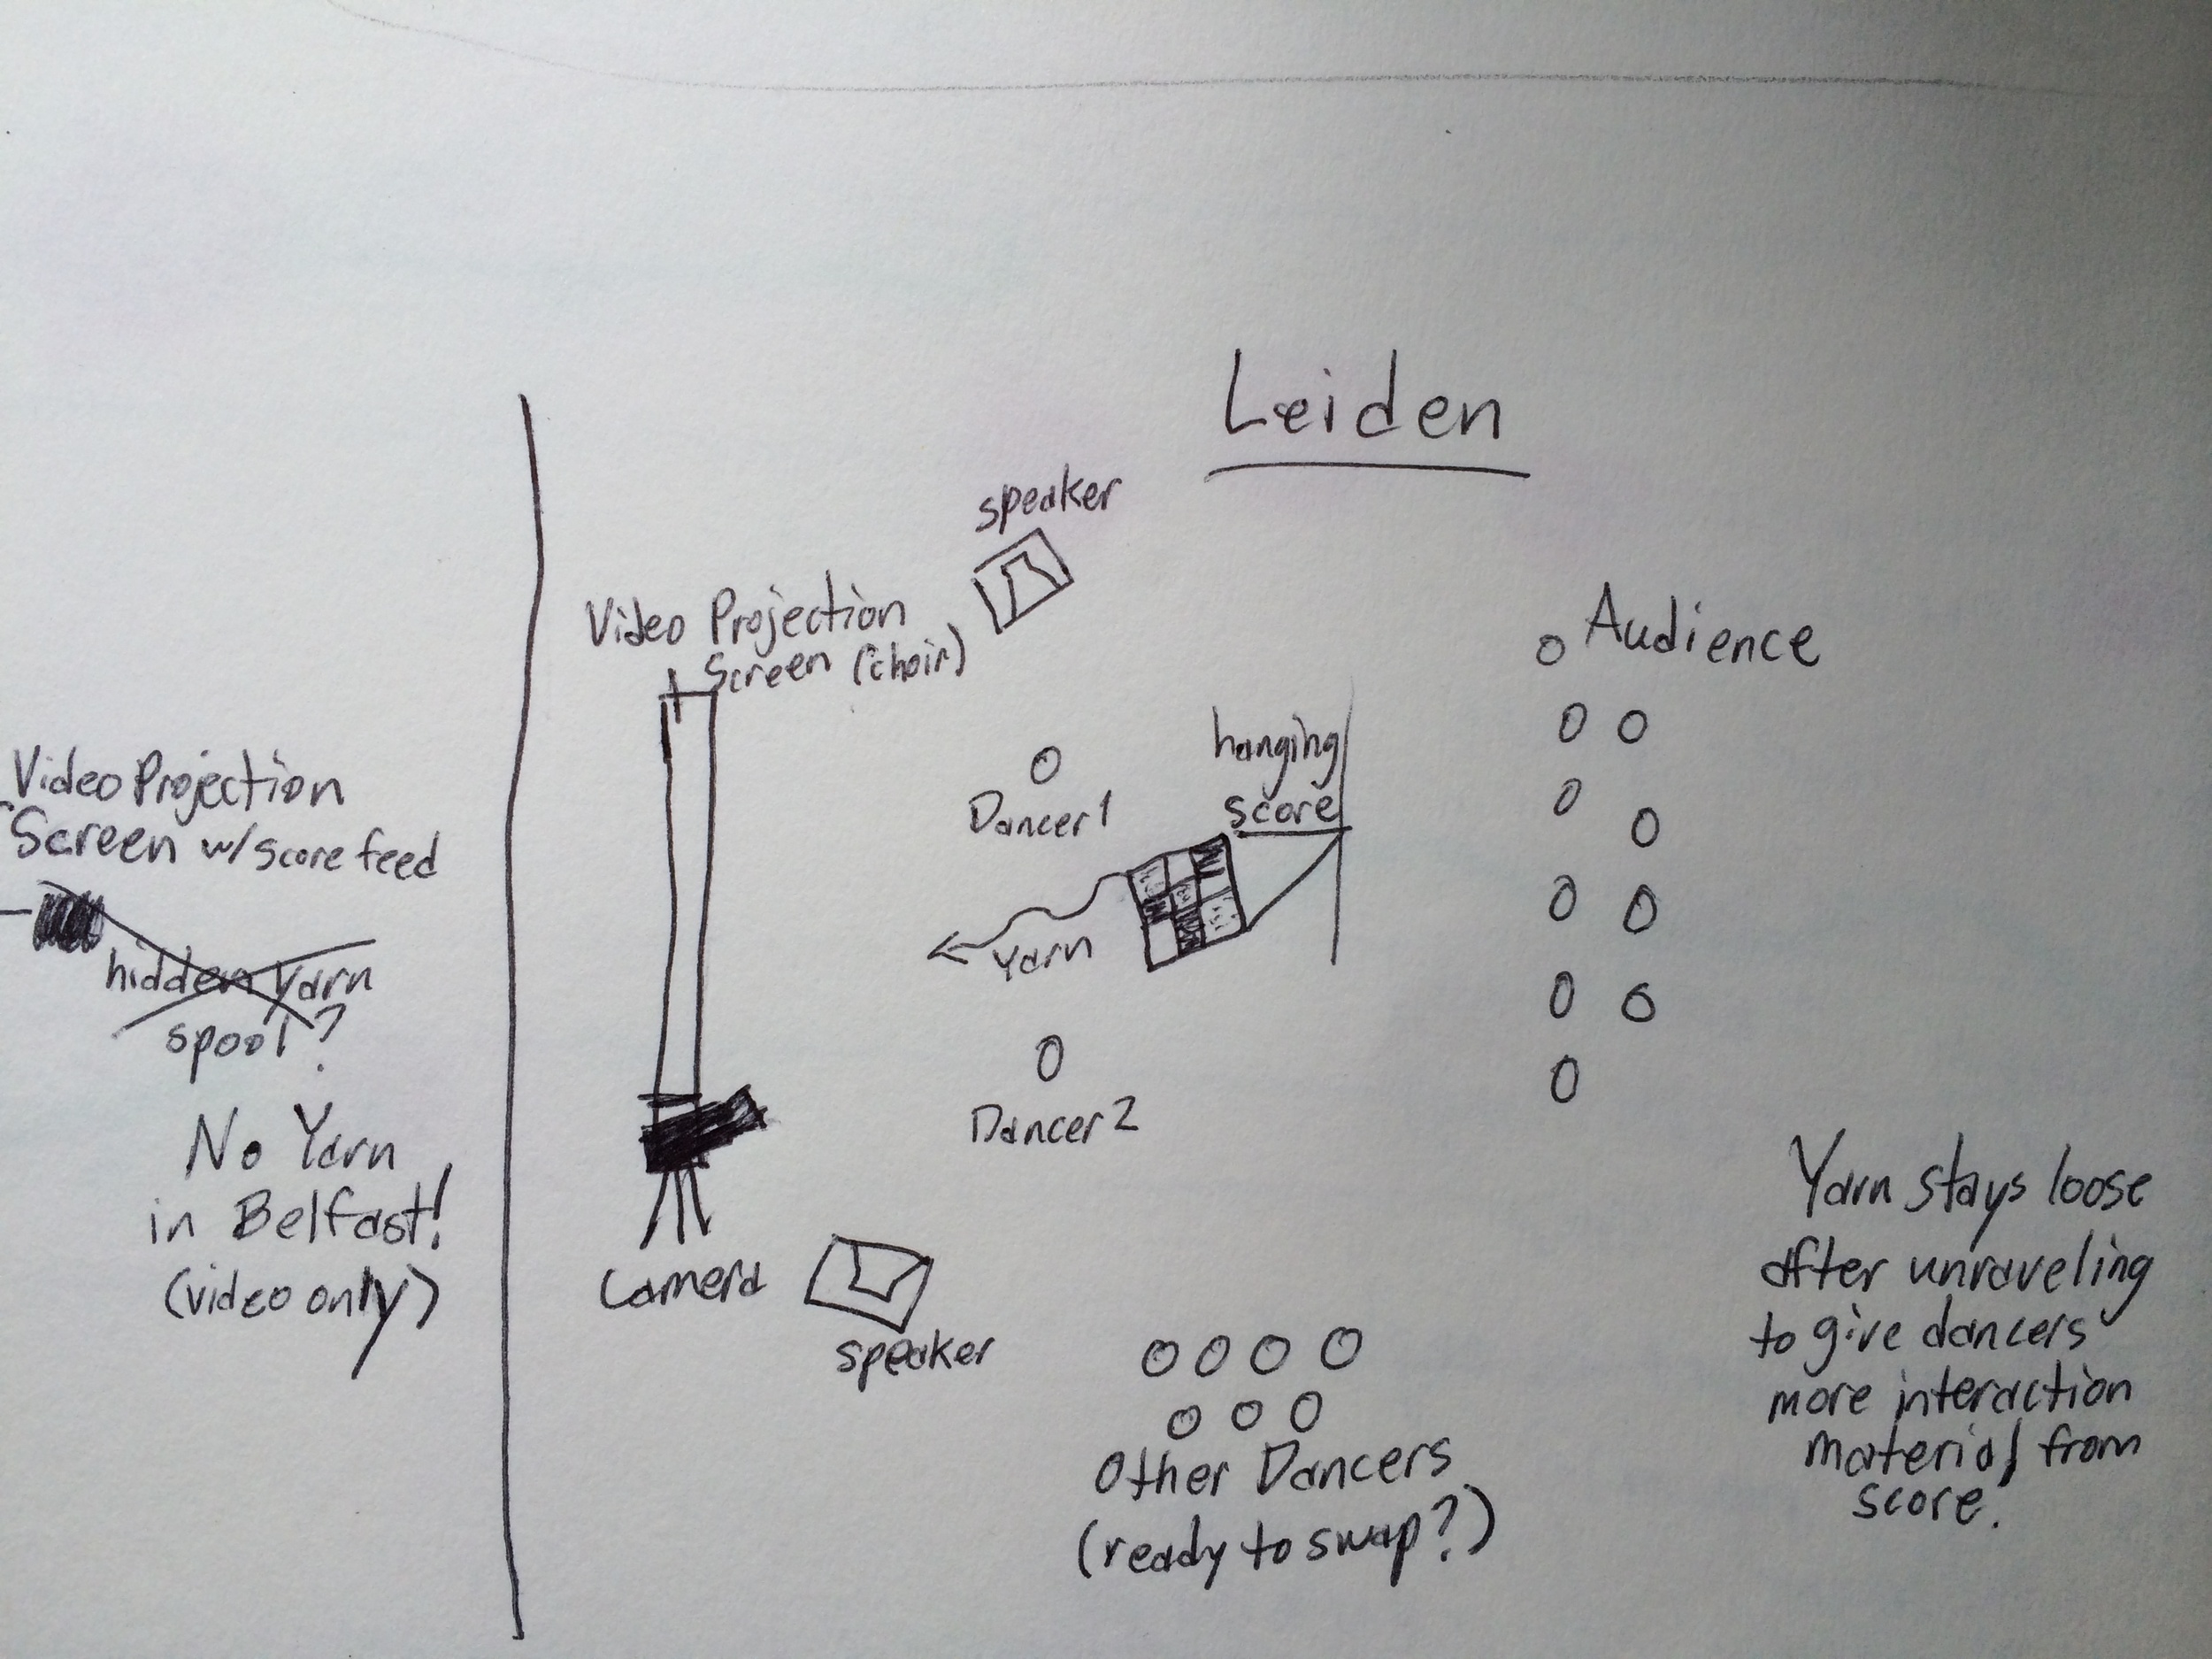 Leiden
speaker
Video Projection
Screen (choir)
Audience
hanging
score
Dancer 1
Yarn
Dancer 2
Camera
speaker
Other Dancers
(ready to swap?)
Yarn stays loose
after unraveling
to give dancers
more interaction
material from
score!
Video Projection
Screen w/ score feed
hidden yarn
spool?
No Yarn
in Belfast!
(video only)